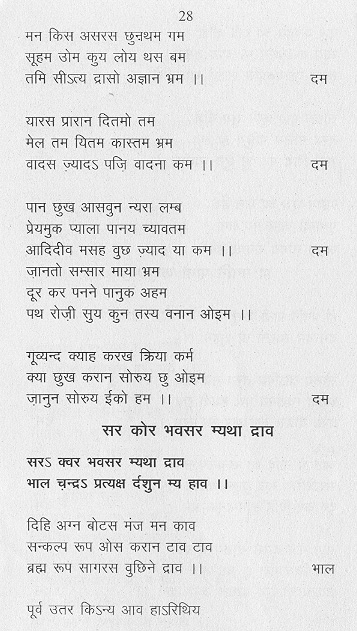 28
मन किस असरस छुनॖथम गम
सूहम उोम कुय लोय थस बम
तमि सीऽत्य द्रासो अज्ञान भ्रम ।। दम
यारस प्रारान दितमो तम
मेल तम यितम कास्तम भ्रम
वादस ज़्यादऽ पज़ि वादना कम ।। दम
पान छुख आसवुन न्यरा लम्ब
प्रेयमुक प्याला पानय च्यावतम
आदिदीव मसह वुछ ज़्याद या कम ।। दम
ज़ानतो सम्सार माया भ्रम
दूर कर पनने पानुक अहम
पथ रोज़ी सुय कुन तस्य वनान ओइम ।।
गूव्यन्द क्याह करख क्रिया कर्म
क्या छुख करान सोरुय छु ओइम
ज़ानुन सोरुय ईको हम ।। दम
सर कोर भवसर म्यथा द्राव
सरऽ क्वर भवसर म्यथा द्राव
भाल च़न्द्रऽ प्रत्यक्ष र्दशुन म्य हाव ।।
दिहि अग्न बोटस मंज मन काव
सन्कल्प रूप ओस करान टाव टाव
ब्रह्म रूप सागरस वुछिने द्राव ।। भाल
पूर्व उतर किऽन्य आव हाऽरिथिय